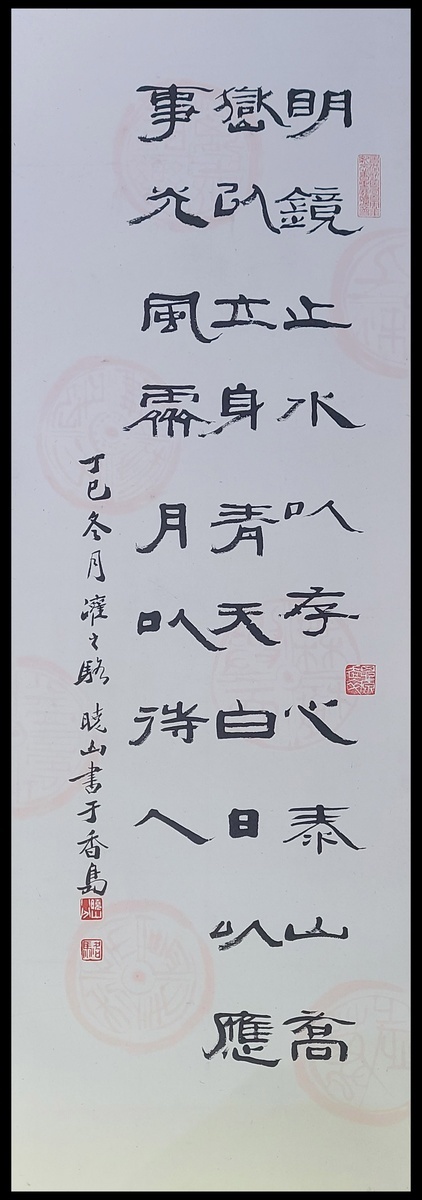 明鏡止水以存心泰山喬
嶽以立身青天白日以應
事光風霽月以待人
丁巳冬月灌之駱曉山書于香島